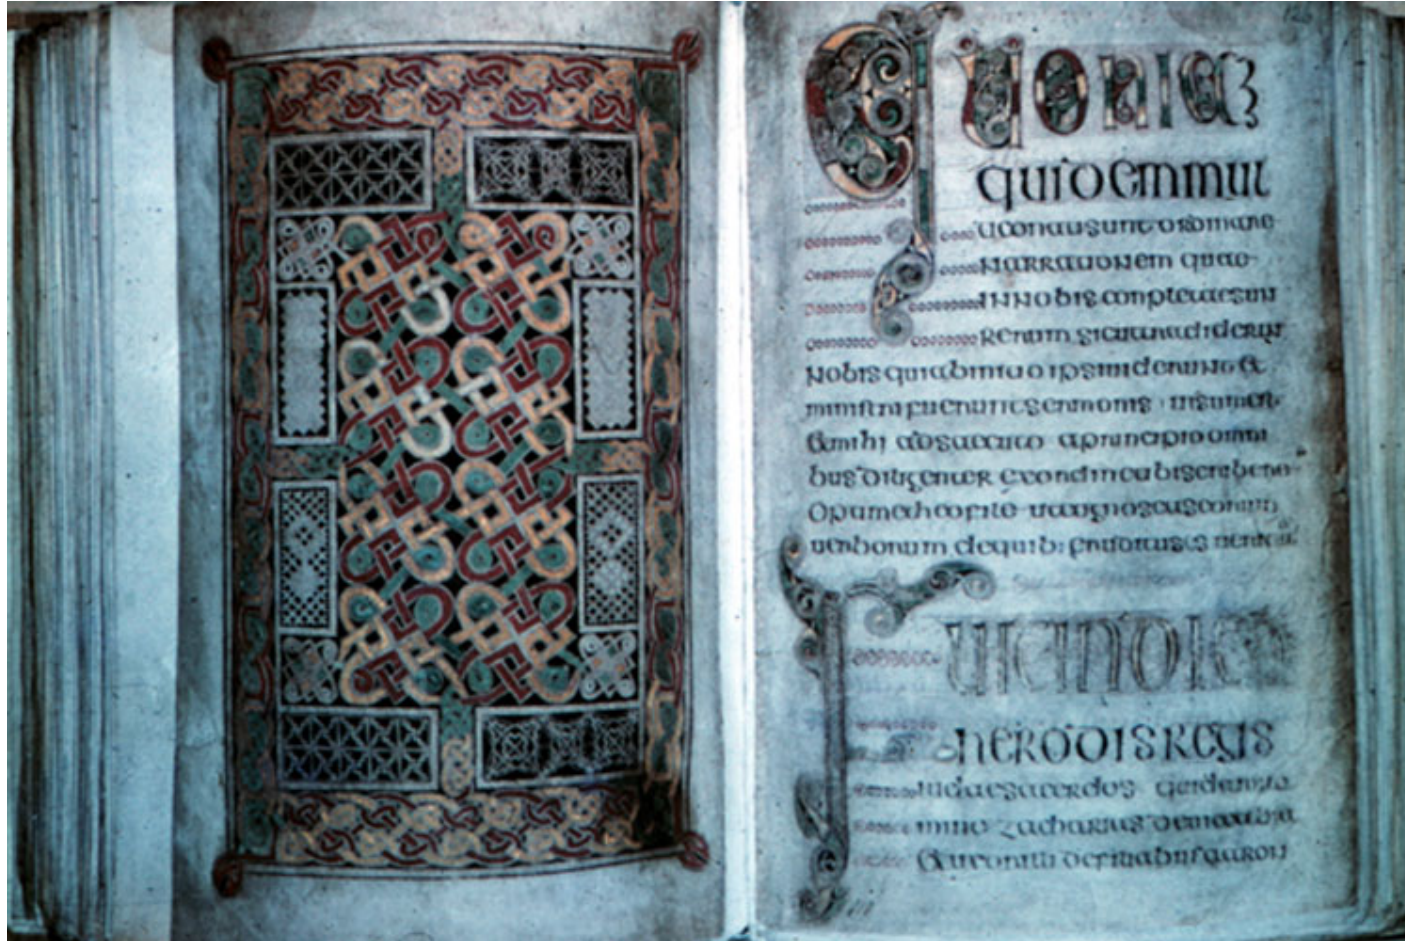 QUONIA
quidem mul
ti conati sunt ordinare
narrationem quae
in nobis conpletae sun
rerum sicut tradider
nobis qui ab initio ipsi uiderunt &
ministri fuerunt sermonis uisum est
& mihi adsecuto a principio omni
bus diligenter ex ordine tibi scribere
optime theofile ut cognoscas eorum
uerborum de quib: eruditus es
F
herodis regis
iudaeae sacerdos quidam no
mine zacharias de abia
filiabus aaron